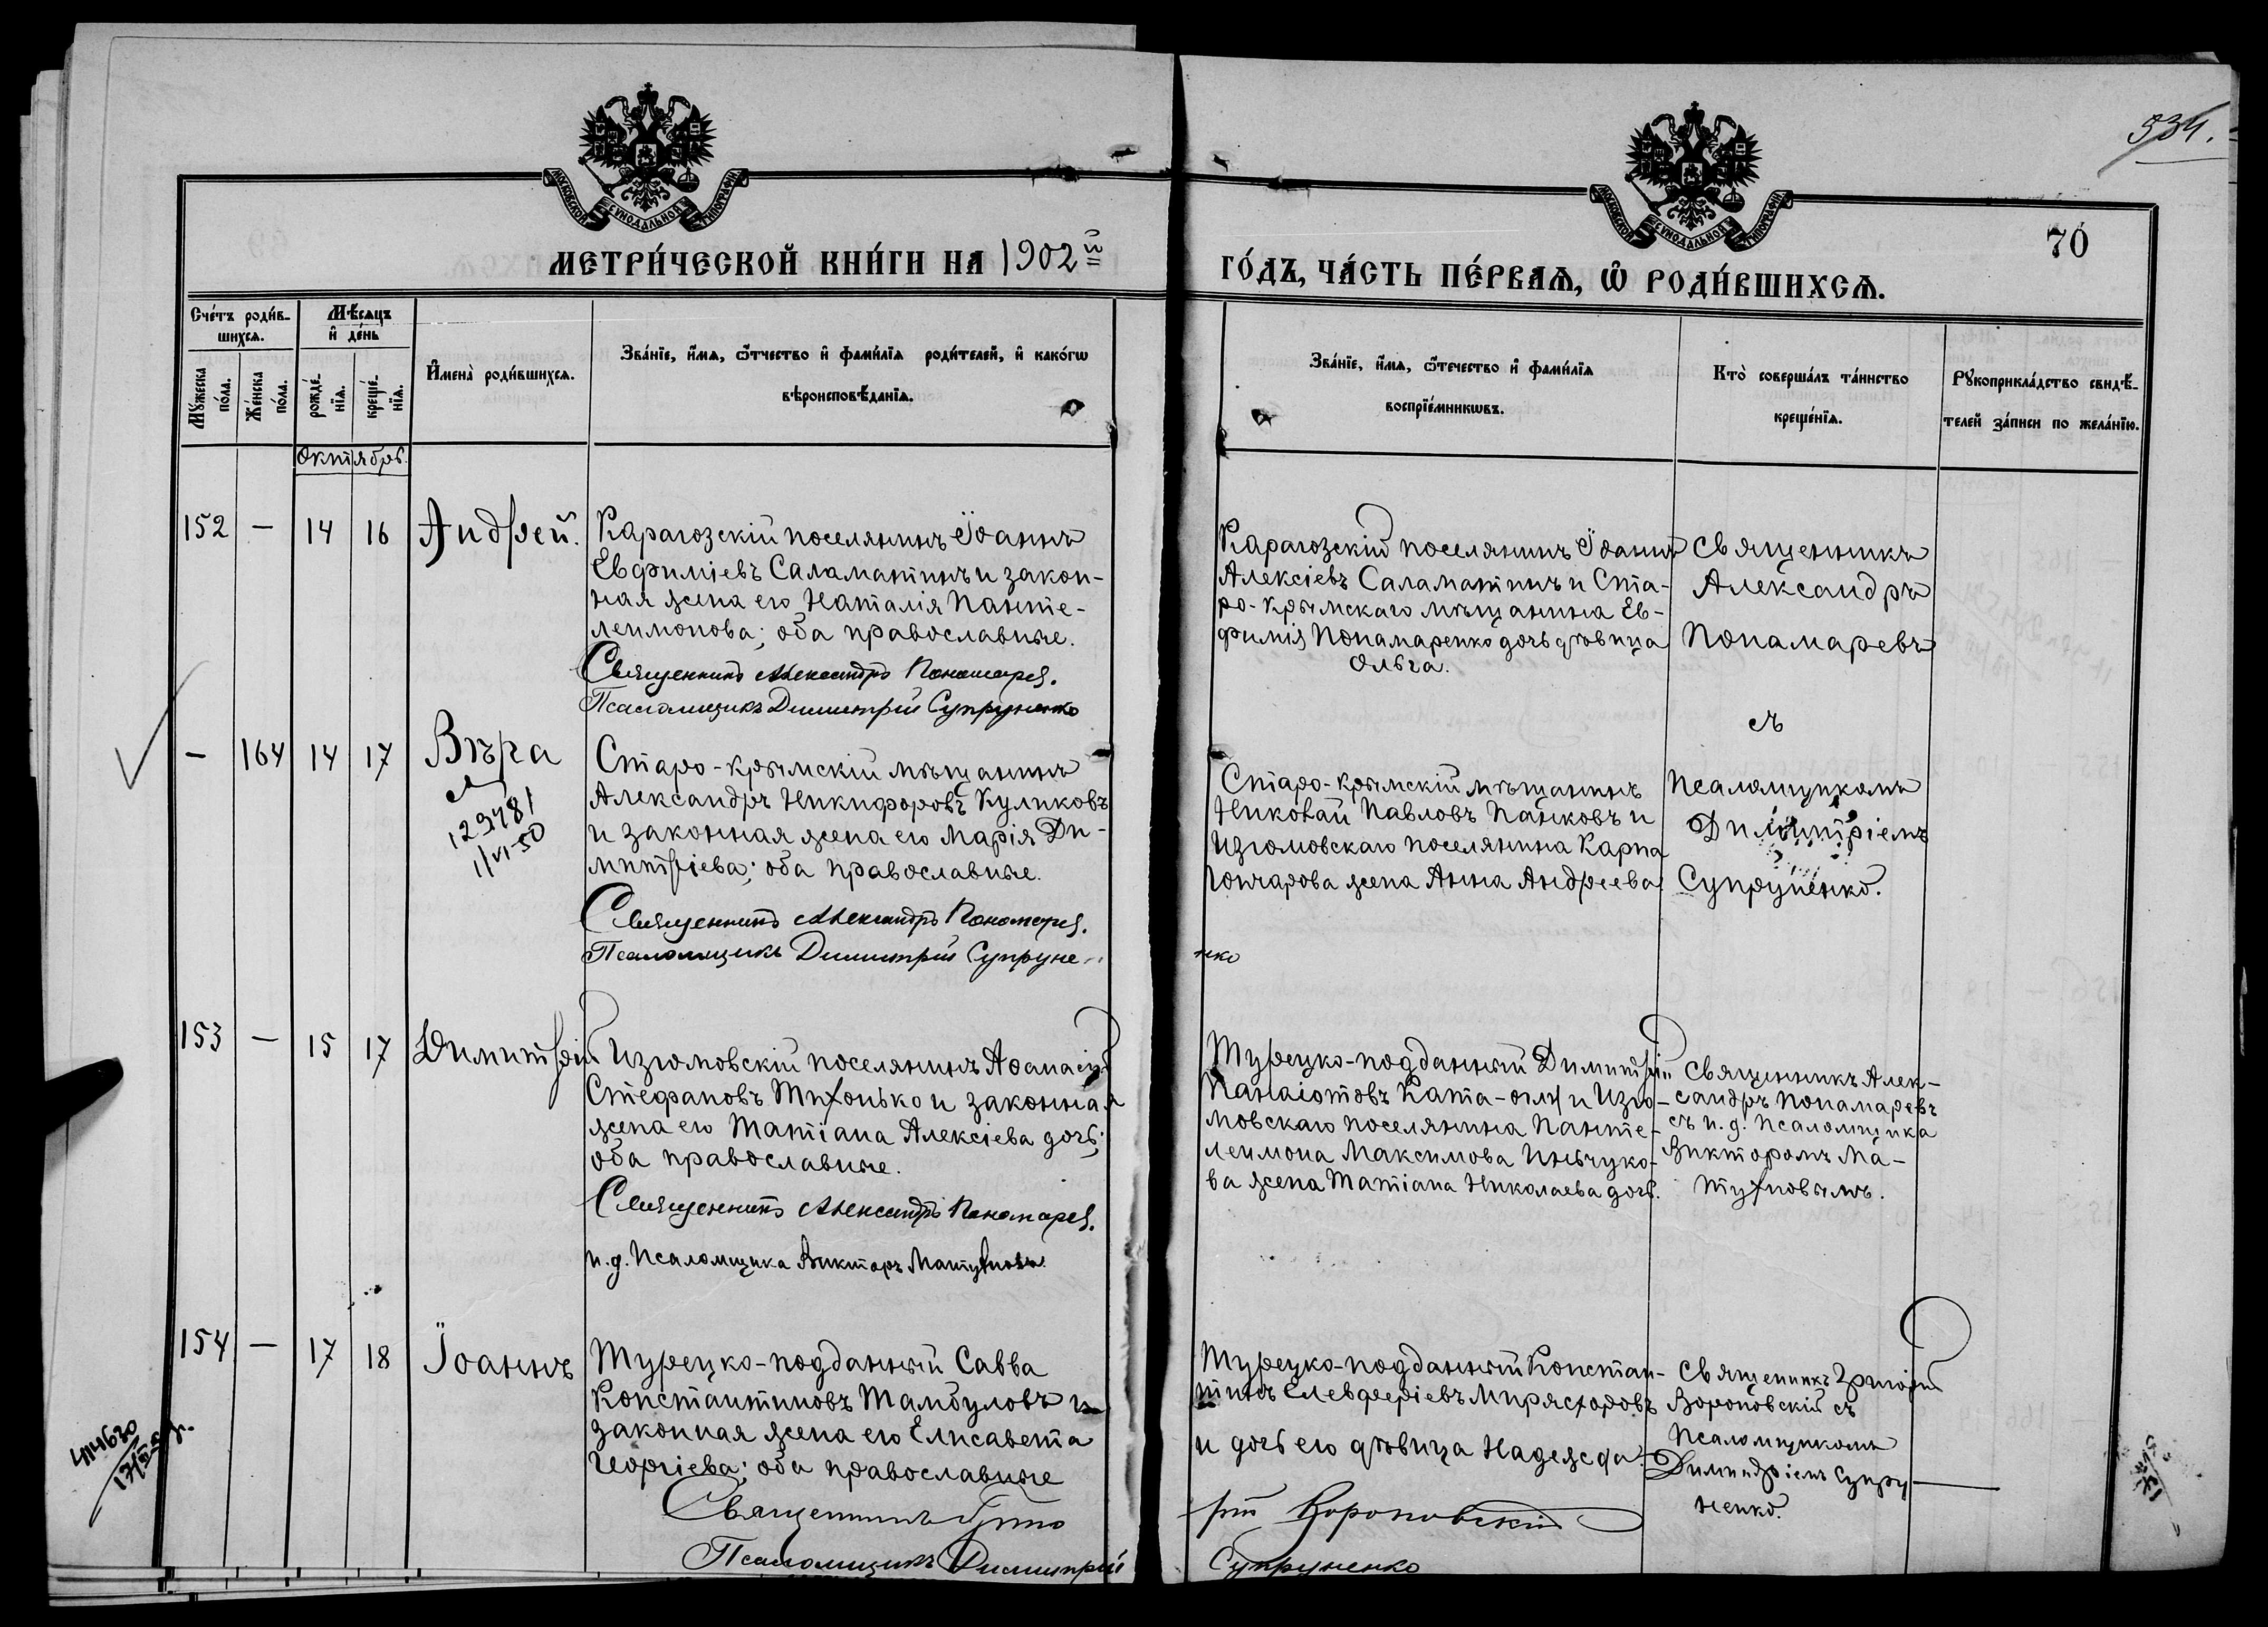 534.
МОСКОВСКОЙ СѴНОДАЛЬНОЙ ТИПОГРАФІИ
МОСКОВСКОЙ СѴНОДАЛЬНОЙ ТИПОГРАФІИ
70
МЕТРИ́ЧЕСКОЙ КНИ́ГИ НА 1902й
ГО́ДЪ, ЧА́СТЬ ПЕ́РВАѦ, Ѽ РОДИ́ВШИХСѦ.
Сче́тъ роди́в-
шихсѧ.
Мѣ́сяцъ
и҆ де́нь
Мꙋ́жеска по́ла.
Же́нска по́ла.
рожде́-нїѧ.
креще́-нїѧ.
И҆мена̀ роди́вшихсѧ.
Зва́нїе, и҆́мѧ, ѻ҆́тчество и҆ фами́лїѧ роди́телей, и҆ како́гѡ
вѣроисповѣ́данїѧ.
Зва́нїе, и҆́мѧ, ѻ҆́течество и҆ фами́лїѧ
воспрїе́мникѡвъ.
Кто̀ соверша́лъ та́инство
креще́нїѧ.
Рꙋкоприкла́дство свидѣ́-
телей за́писи по жела́нїю.
Октябрь.
152 — 14 16 Андрей.
Карагозскій поселянинъ Іоаннъ
Евфиміевъ Саламатинъ и закон-
ная жена его Наталія Панте-
леимонова; оба православные.
Священникъ Александръ Пономарев.
Псаломщикъ Димитрій Супруненко
Карагозскій поселянинъ Іоаннъ
Алексіевъ Саламатинъ и Ста-
ро-Крымскаго мѣщанина Ев-
фимія Понамаренко дочь дѣвица
Ольга.
Священникъ
Александръ
Понамаревъ
съ
— 164 14 17 Вѣра
129481
1/VI-50
Старо-Крымскій мѣщанинъ
Александръ Никифоровъ Куликовъ
и законная жена его Марія Ди-
митріева; оба православные.
Священникъ Александръ Пономарев.
Псаломщикъ Димитрій Супруне-
нко
Старо-Крымскій мѣщанинъ
Николай Павловъ Панковъ и
Изюмовскаго поселянина Карпа
Гончарова жена Анна Андреева
Псаломщикомъ
Димитріемъ
Супруненко.
153 — 15 17 Димитрій
Изюмовскій поселянинъ Аѳанасій
Стефановъ Тихонько и законная
жена его Татіана Алексіева дочь;
оба православные.
Священникъ Александръ Пономарев.
и.д. Псаломщика Викторъ Матухновъ
Турецко-подданный Димитрій
Панаіотовъ Ката-оглу и Изю-
мовскаго поселянина Панте-
леимона Максимова Иньчуко-
ва жена Татіана Николаева дочь.
Священникъ Алек-
сандръ Понамаревъ
съ и.д. Псаломщика
Викторомъ Ма-
тухновымъ.
154 — 17 18 Іоаннъ
Турецко-подданный Савва
Константиновъ Тамбуловъ и
законная жена его Елисавета
Георгіева; оба православные
Священникъ Григо
рій Вороновскій
Псаломщикъ Димитрій
Супруненко
Турецко-подданный Констан-
тинъ Елевферіевъ Мирясхоровъ
и дочь его дѣвица Надежда.
Священникъ Григорій
Вороновскій съ
Псаломщикомъ
Димитріемъ Супру
ненко.